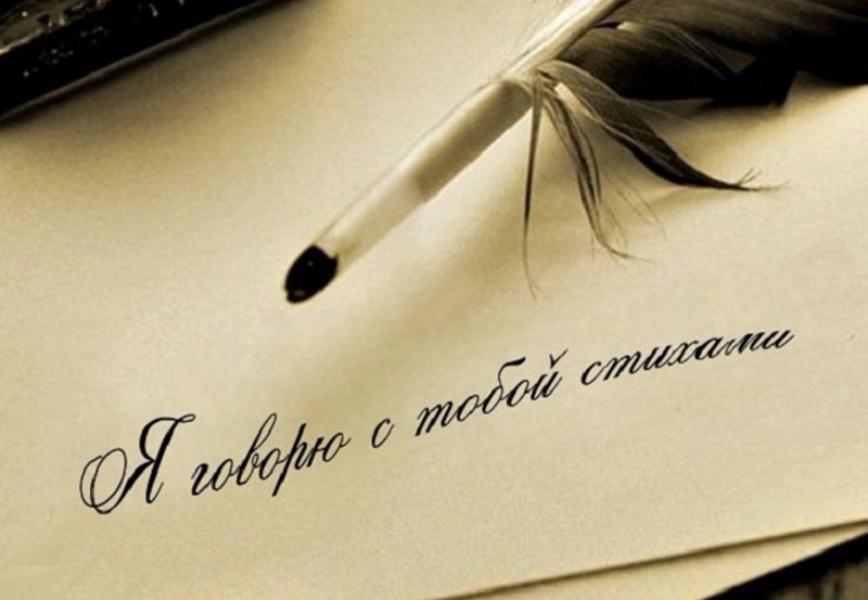 Я говорю с тобой стихами